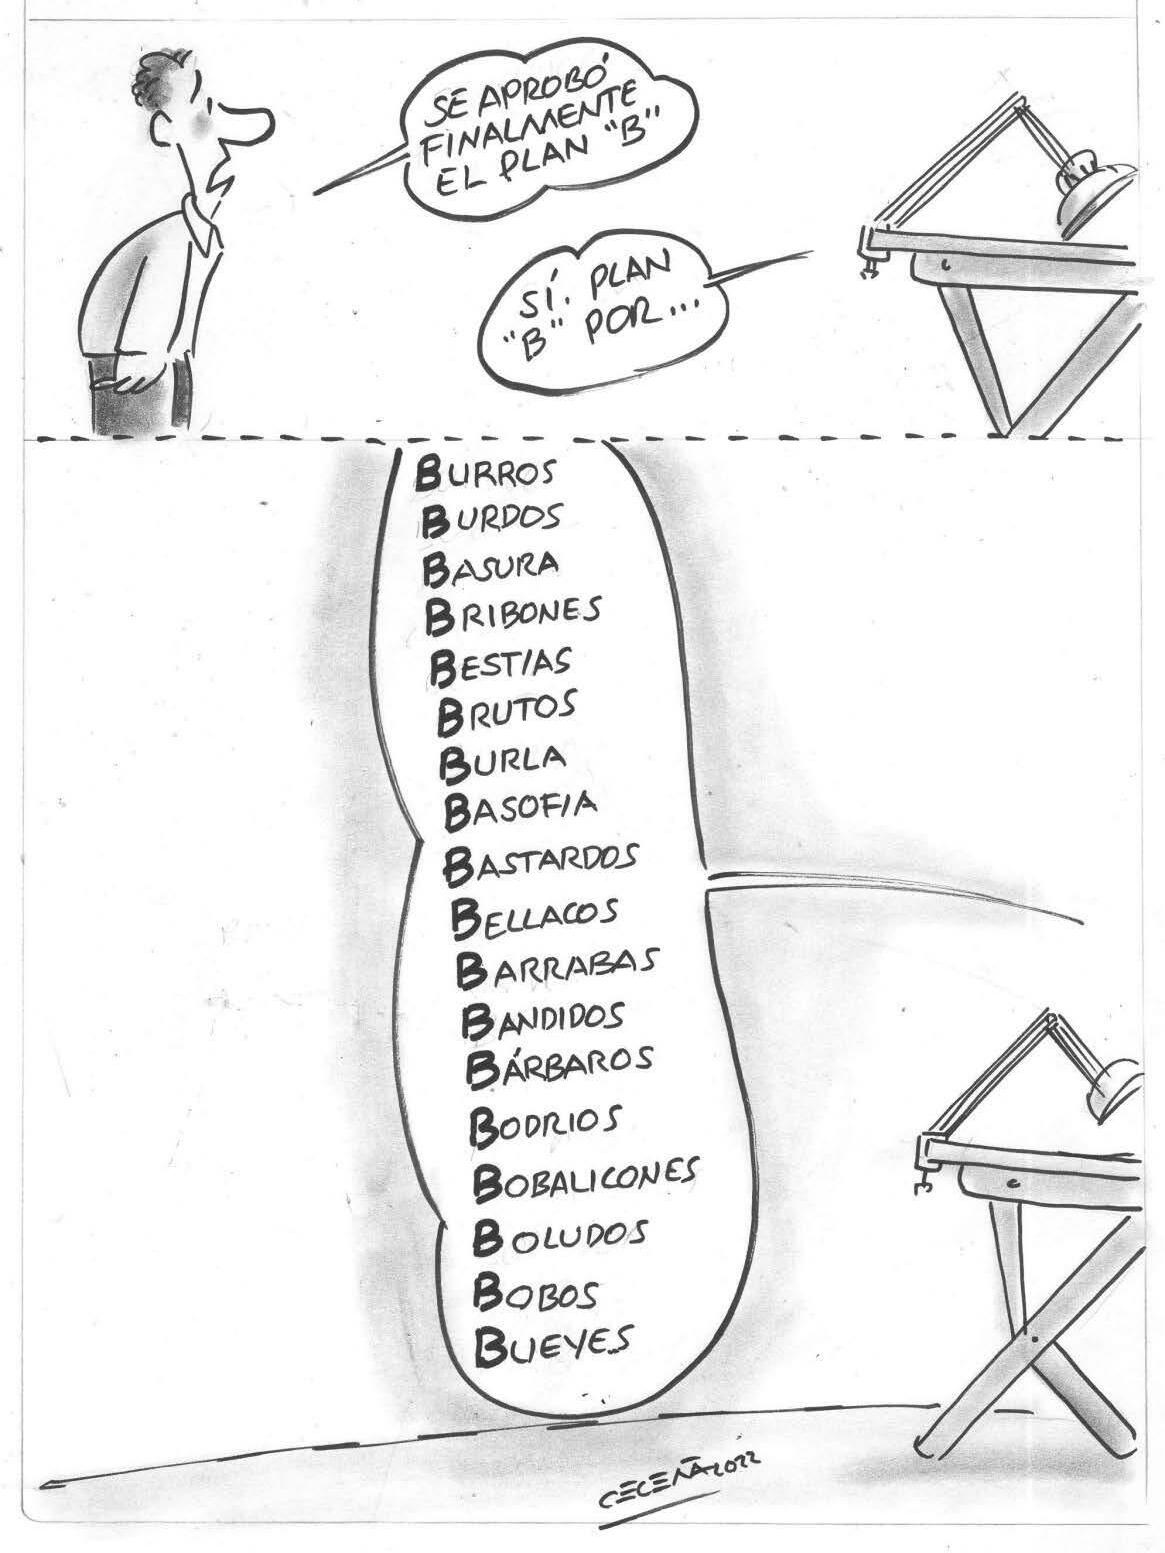 SE APROBÓ
FINALMENTE
EL PLAN "B"
SÍ. PLAN
"B" POR...
BURROS
BURDOS
BASURA
BRIBONES
BESTIAS
BRUTOS
BURLA
BASOFIA
BASTARDOS
BELLACOS
BARRABAS
BANDIDOS
BÁRBAROS
BODRIOS
BOBALICONES
BOLUDOS
BOBOS
BUEYES
CECEÑA 2022